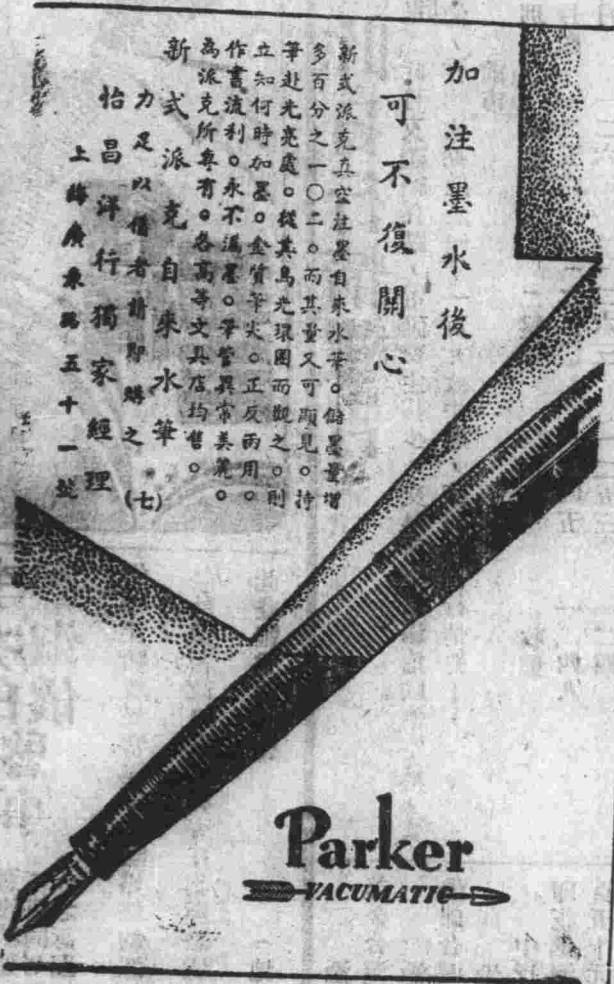 加注墨水後
可不復關心
新式派克真空注墨自來水筆。儲墨量增
多百分之一〇二。而其量又可顯見。持
筆赴光亮處。從其烏光環圈而觀之。則
立知何時加墨。金質筆尖。正反兩用。
作書流利。永不漏墨。筆管異常美麗。
為派克所專有。各高等文具店均售。
新式派克自來水筆
力足以償者請即購之 (七)
怡昌洋行獨家經理
上海廣東路五十一號
Parker
VACUMATIC